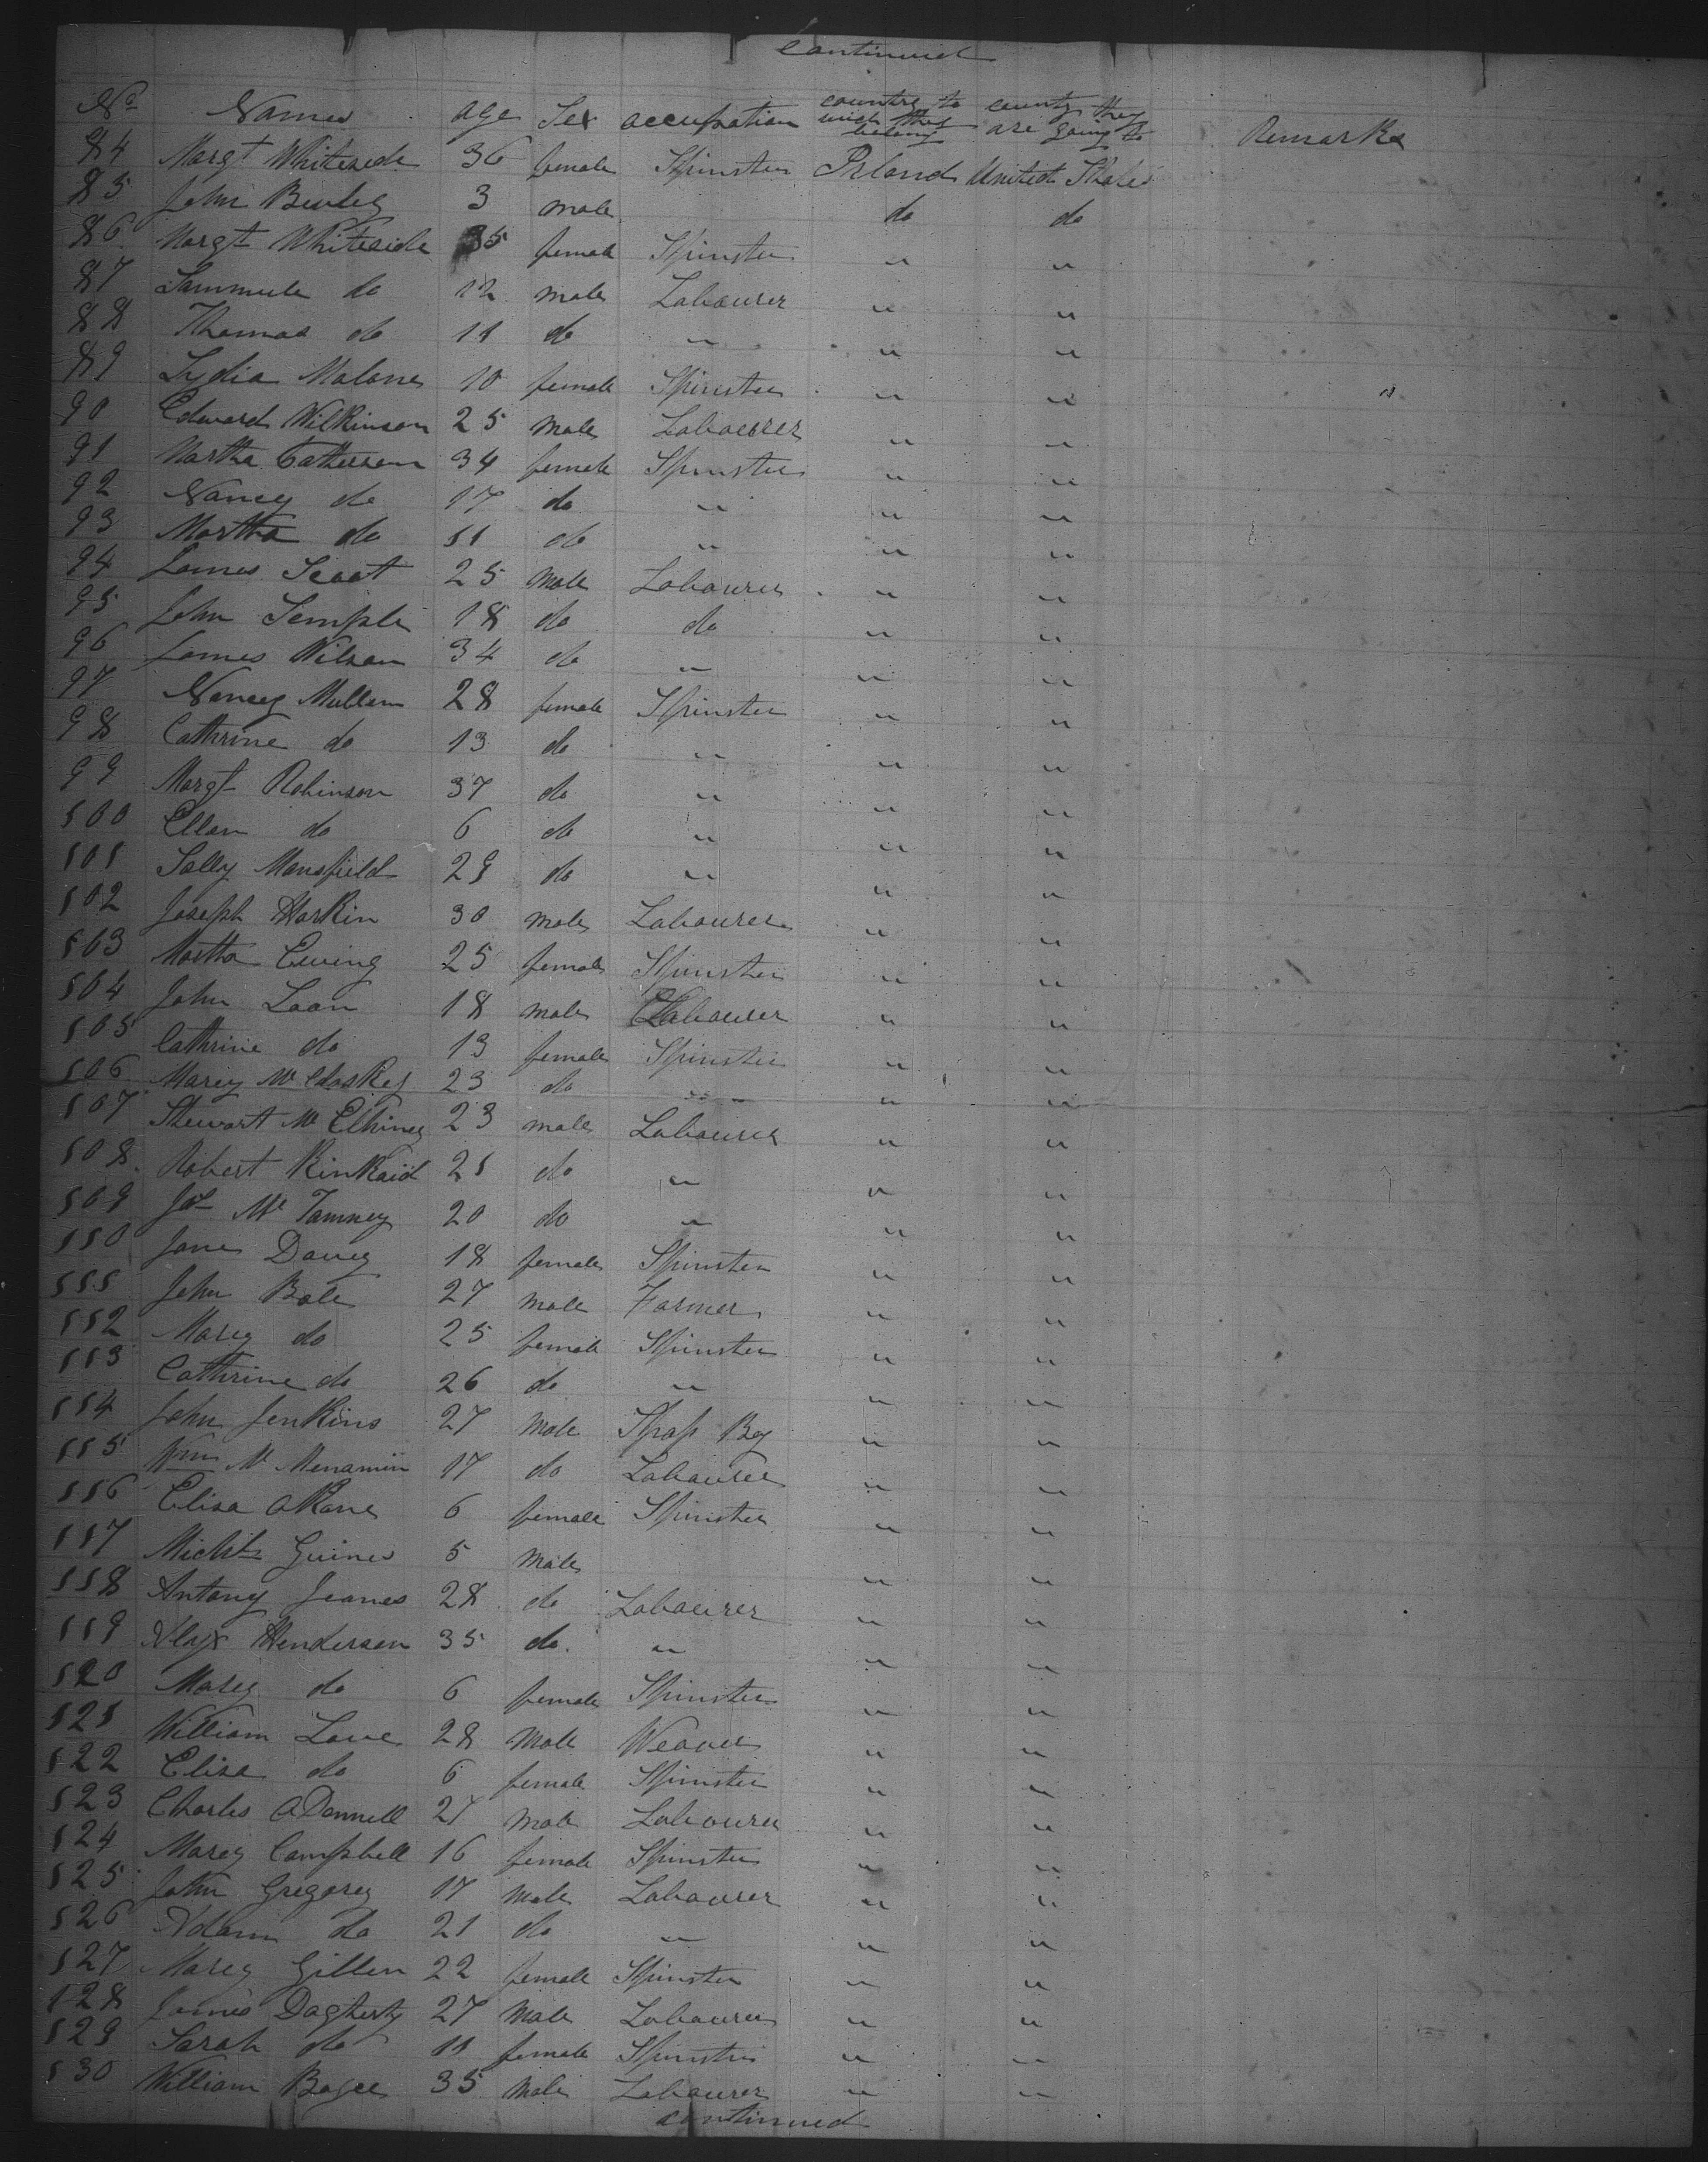 Continued
No Names age Sex occupation country to wich they belong country they are going to Remarks
84 Margt Whiteside 36 female Spinster Irland United States
85 John 3 male do do
86 Margt Whiteside 35 female Spinster " "
87 Sammule do 12 male Labourer " "
88 Thomas do 11 do " " "
89 Lydia Malone 10 female Spinster " "
90 Edward Wilkinson 25 male Labourer " "
91 Martha Catterson 34 female Spinster " "
92 Nancy do 17 do " " "
93 Martha do 11 do " " "
94 James Scoot 25 male Labourer " "
95 John Semple 18 do do " "
96 James Wilson 34 do " " "
97 Nancy Mullan 28 female Spinster " "
98 Cathrine do 13 do " " "
99 Margt Robinson 37 do " " "
100 Ellan do 6 do " " "
101 Sally Mansfield 29 do " " "
102 Joseph Harkin 30 male Labourer " "
103 Martha Ewing 25 female Spinster " "
104 John Loan 18 male Labourer " "
105 Cathrine do 13 female Spinster " "
106 Marey McCloskey 23 do " " "
107 Stewart McElhiney 23 male Labourer " "
108 Robert Kinkaid 21 do " " "
109 Jas McTamney 20 do " " "
110 Jane Davey 18 female Spinster " "
111 John Bole 27 male Farmer " "
112 Marey do 25 female Spinster " "
113 Cathrine do 26 do " " "
114 John Jenkins 27 male Shop Boy " "
115 Wm McMenamin 17 do Labourer " "
116 Elisa OKane 6 female Spinster " "
117 Guines 5 male " "
118 Antony Jeanes 28 do Labourer " "
119 Alex Henderson 35 do " " "
120 Marey do 6 female Spinster " "
121 William Love 28 male Weaver " "
122 Elisa do 6 female Spinster " "
123 Charles ODonnell 27 male Labourer " "
124 Marey Campbell 16 female Spinster " "
125 John Gregorey 17 male Labourer " "
126 Adam do 21 do " " "
127 Marey Gillen 22 female Spinster " "
128 James Dagherty 27 male Labourer " "
129 Sarah do 11 female Spinster " "
130 William 35 male Labourer " "
continued